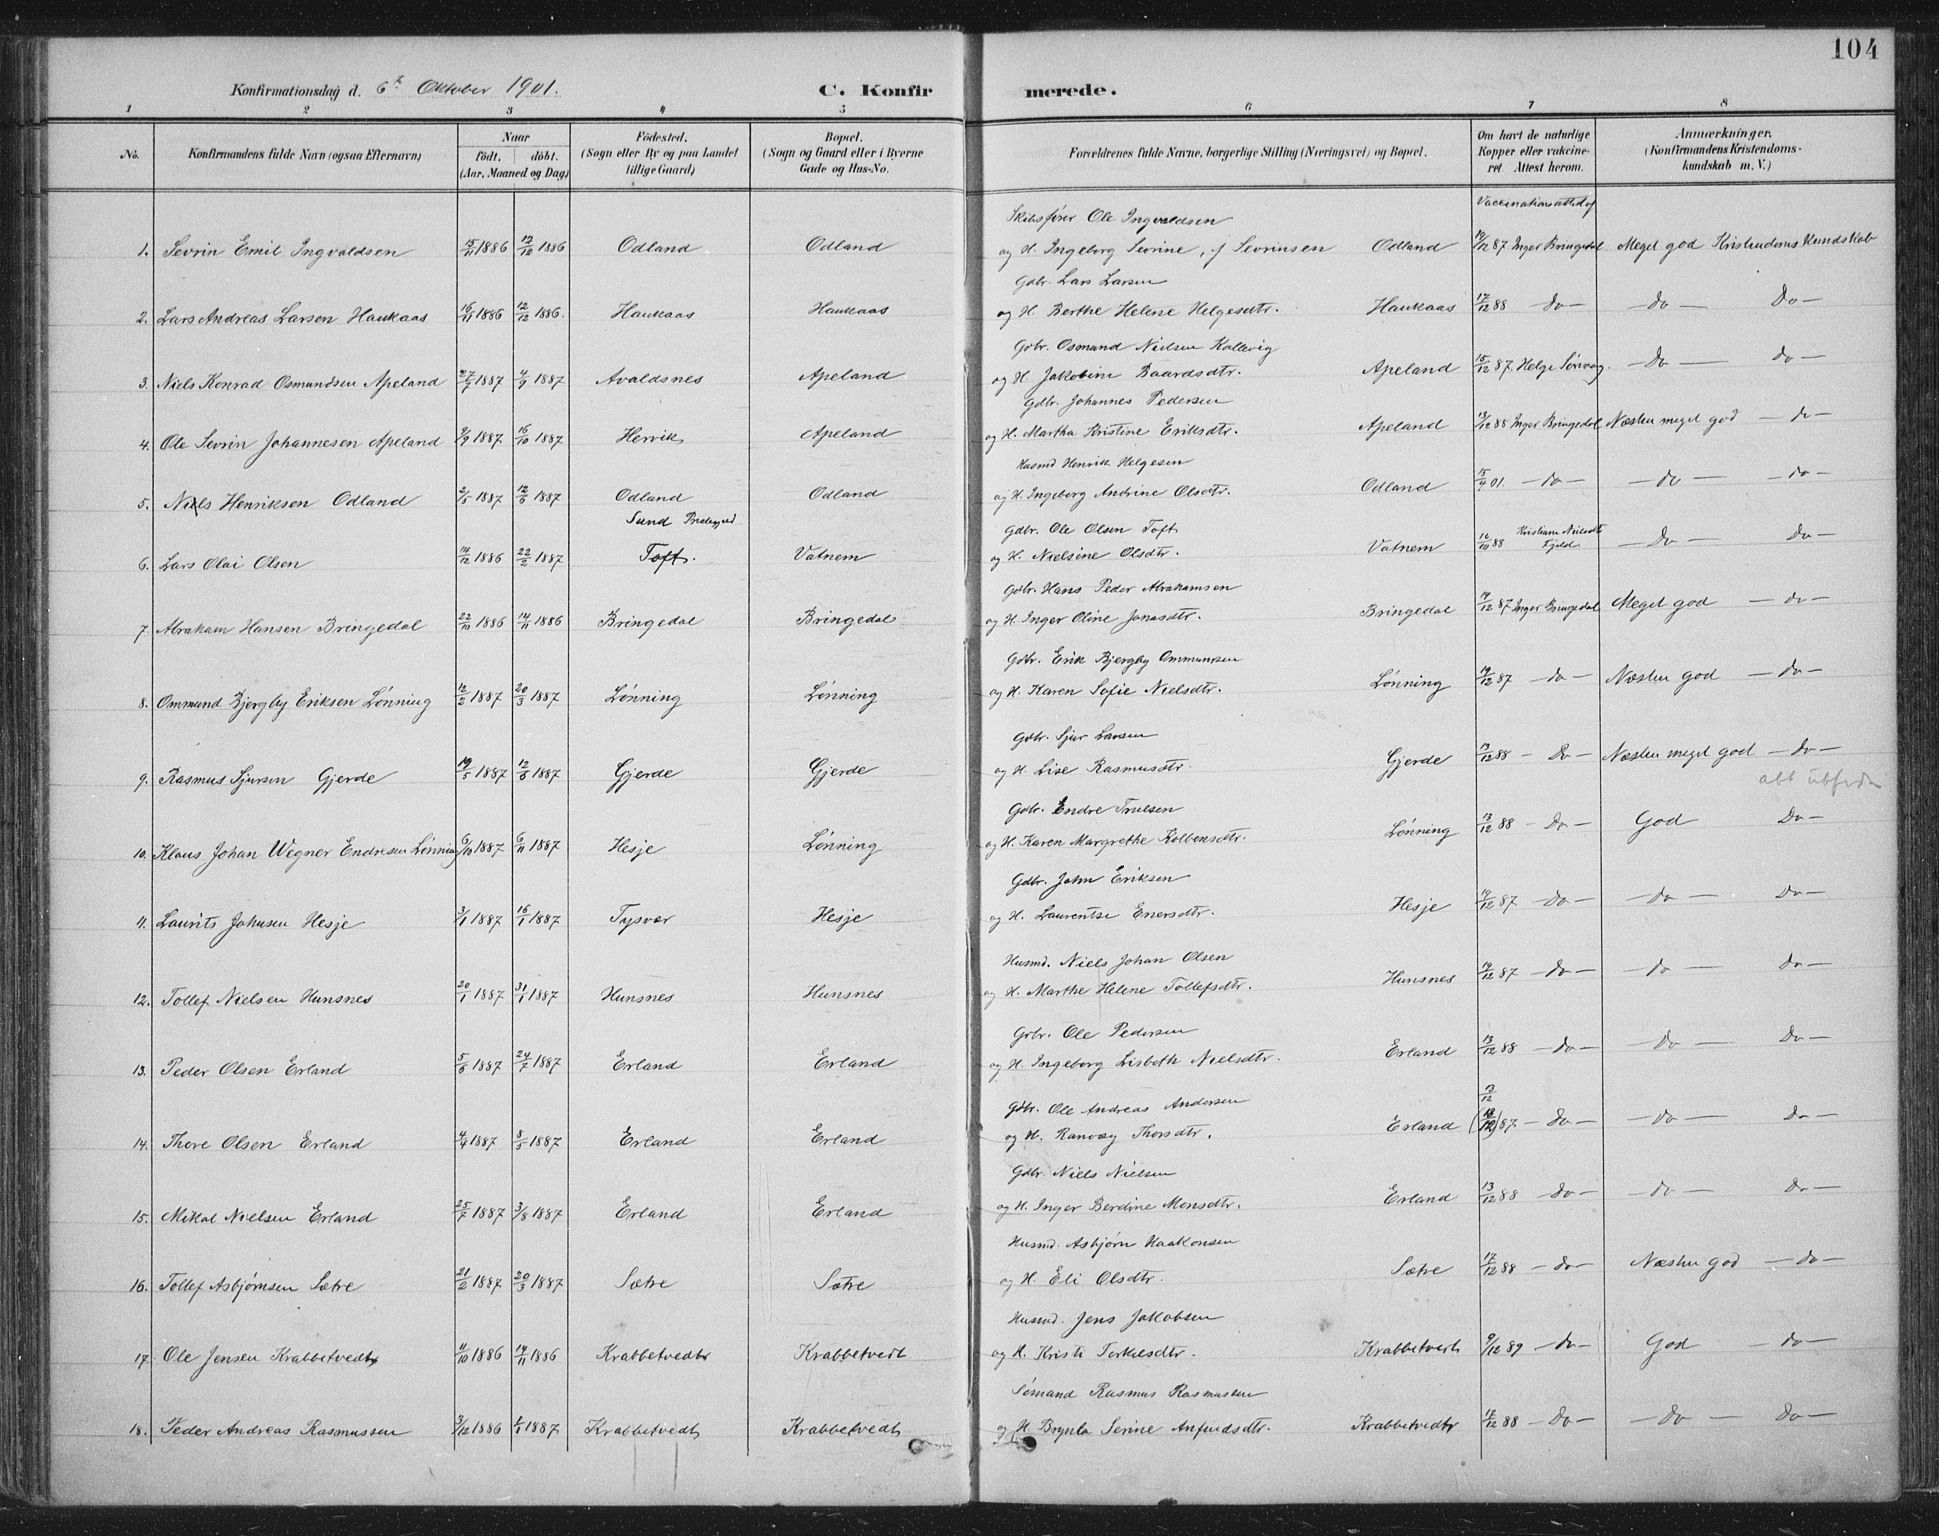 104
Konfirmationsdag d. 6te Oktober 1901. C. Konfirmerede.
1 2 3 4 5 6 7 8
No. Konfirmandens fulde Navn (ogsaa Efternavn) Naar födt. döbt. (Aar, Maaned og Dag) Födested. (Sogn eller By og paa Landet tillige Gaard) Bopæl. (Sogn og Gaard eller i Byerne Gade og Hus-No. Forældrenes fulde Navne, borgerlige Stilling (Næringsvei) og Bopæl. Om havt de naturlige Kopper eller vakcineret. Attest herom. Anmærkninger. (Konfirmandens Kristendomskundskab m. V.)
Skibsfører Ole Ingvaldsen Vaccinationsattest af
1. Sevrin Emil Ingvaldsen 15/11 1886 12/12 1886 Odland Odland og H. Ingeborg Sevrine, f Sevrinsen Odland 19/12 87 Inger Bringedal Meget god Kristendoms Kundskab
Gdbr. Lars Larsen
2. Lars Andreas Larsen Haukaas 16/11 1886 12/12 1886. Haukaas Haukaas og H. Berthe Helene Helgesdtr. Haukaas 17/12 88 — do — — do — Do —
Gdbr. Osmund Nielsen Kallevig
3. Niels Konrad Osmundsen Apeland 27/7 1887 4/9 1887 Avaldsnes Apeland og H Jakobine Baardsdtr. Apeland 15/12 87. Helge Sørvaag. — do — do —
Gdbr. Johannes Pedersen
4. Ole Sevrin Johannesen Apeland 2/9 1887 16/10 1887 Hervik Apeland og H. Martha Kristine Eriksdtr. Apeland 13/12 88 Inger Bringedal Næsten meget god — do —
Husmd Henrik Helgesen
5. Niels Henriksen Odland 2/5 1887 12/6 1887 Odland Odland og H. Ingeborg Andrine Olsdtr. Odland 15/9 01. — do — — do — — do —
Sund Gdbr. Ole Olsen Toft
6. Lars Olai Olsen 14/12 1886 22/2 1887 Toft. Vatnem og H. Nielsine Olsdtr. Vatnem 16/10 88 Kristiane Nielsdtr Fjeld — Do — Do —
Gdbr. Hans Peder Abrahamsen
7. Abraham Hansen Bringedal 22/10 1886 14/11 1886 Bringedal Bringedal og H. Inger Oline Jonasdtr. Bringedal 19/12 87 Inger Bringedal Meget god — do —
Gdbr. Erik Bjergby Ommundsen
8. Ommund Bjergby Eriksen Lønning 12/2 1887 20/3 1887 Lønning Lønning og H. Karen Sofie Nielsdtr. Lønning 19/12 87 — do — Næsten god — do —
Gdbr. Sjur Larsen
9. Rasmus Sjursen Gjerde 19/5 1887 12/6 1887 Gjerde Gjerde og H. Lise Rasmusdtr. Gjerde 13/12 88 — Do — Næsten meget god — do —
Gdbr. Endre Trulsen
10. Klaus Johan Wegner Endresen Lønning 6/10 1887 6/11 1887 Hesje Lønning og H. Karen Margrethe Kolbensdtr. Lønning 13/12 88 — do — God Do —
Gdbr. John Eriksen
11. Laurits Johnsen Hesje 3/1 1887 16/1 1887 Tysvær Hesje og H. Laurentse Enersdtr. Hesje 19/12 87 — do — — do — Do —
Husmd. Niels Johan Olsen
12. Tollef Nielsen Hunsnes 20/1 1887 31/1 1887 Hunsnes Hunsnes og H. Marthe Helene Tollefsdtr. Hunsnes 19/12 87 — do — — do — do —
Grbr. Ole Pedersen
13. Peder Olsen Erland 5/6 1887 24/7 1887 Erland Erland og H. Ingeborg Lisbeth Nielsdtr. Erland 13/12 88 — do — — do — Do —
Gdbr. Ole Andreas Andersen 13/12
14. Thore Olsen Erland 4/4 1887 8/5 1887 Erland Erland og H. Ranvæg Thorsdtr. Erland 87 — do — — do — Do —
Gdbr. Niels Nielsen
15. Mikal Nielsen Erland 25/7 1887 3/8 1887 Erland Erland og H. Inger Berdine Monsdtr. Erland 13/12 88 — do — — do — do —
Husmd. Asbjørn Haakonsen
16. Tollef Asbjørnsen Sætre 21/2 1887 20/3 1887 Sætre Sætre og H. Eli Olsdtr. Sætre 17/12 88 — do — Næsten god — do —
Husmd. Jens Jakobsen
17. Ole Jensen Krabbetvedt 11/10 1886 14/11 1886 Krabbetvedt Krabbetvedt og H. Kristi Torkelsdtr. Krabbetvedt 9/12 89 — do — God — do —
Sømand Rasmus Rasmussen
18. Peder Andreas Rasmussen 3/12 1886 1887 Krabbetvedt Krabbetvedt og H Brynla Serine Anfindsdtr. Krabbetvedt 17/12 88 — do — — do — Do —